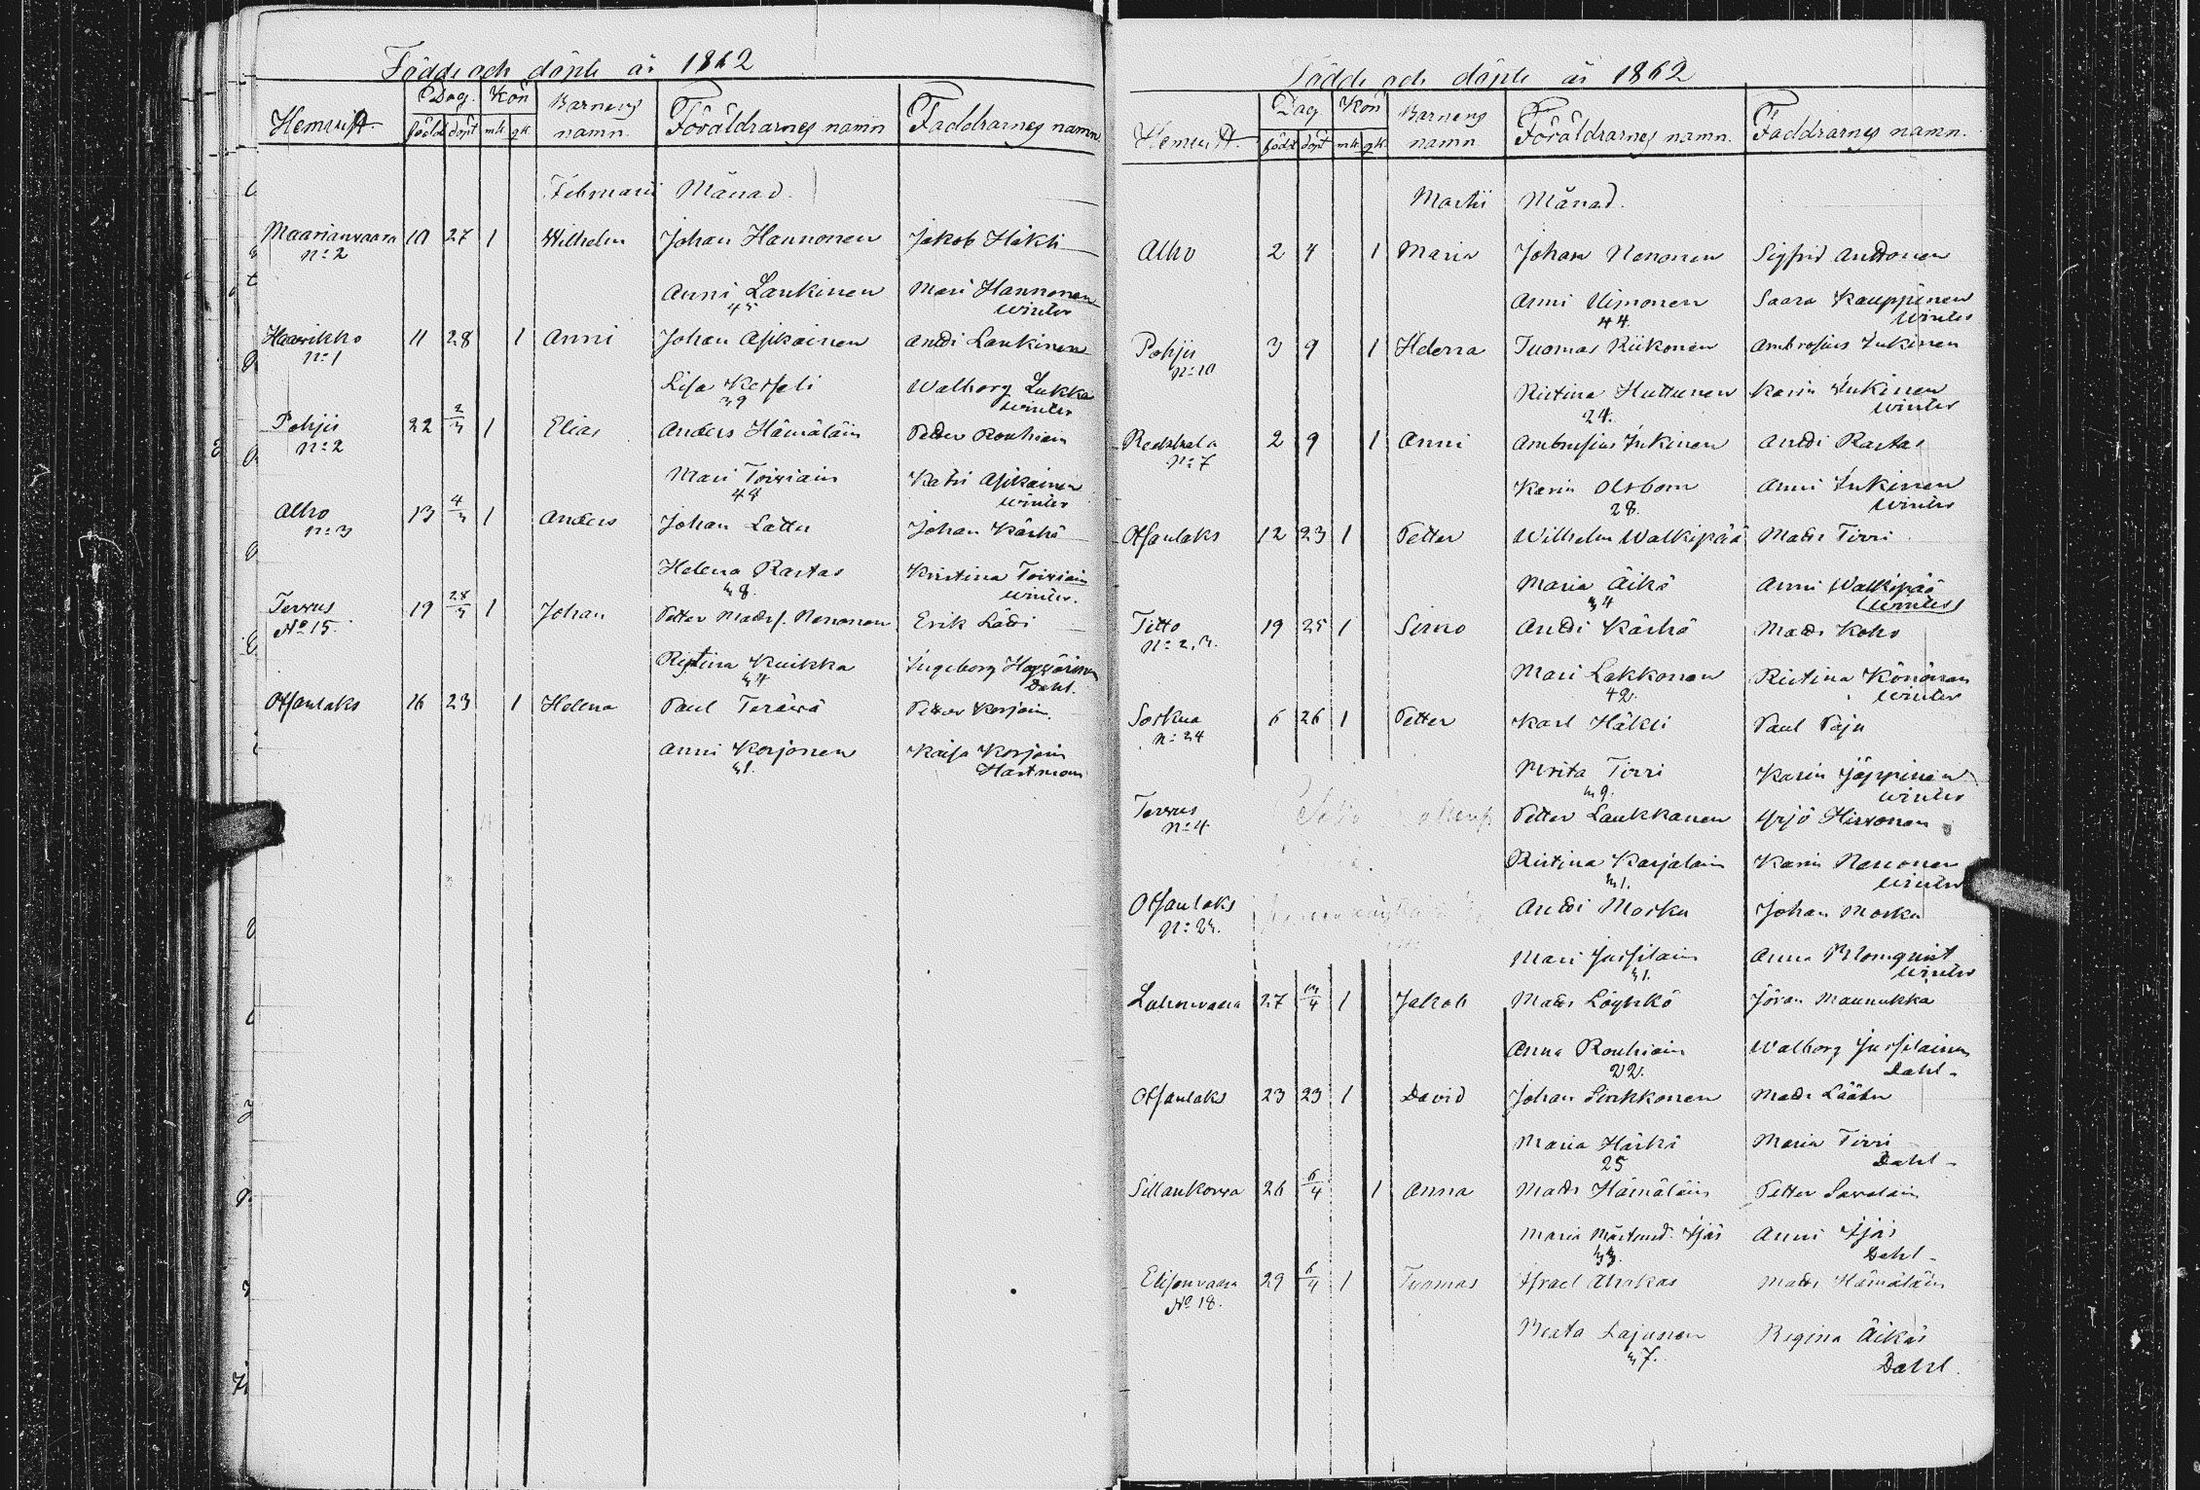 Födde och döpte år 1862
Hemvist. Dag. Kön Barnens namn. Föräldrarnes namn Faddrarnes namn
född döpt mk qk
Februarii Månad.
Maarianvaara 10 27 1 Wilhelm Johan Hannonen Jakob Häkli
No 2
Anni Laukinen Mari Hannonen
45 Winter
Haavikko 11 28 1 Anni Johan Asikainen Andi Laukinen
No 1
Lisa Kesseli Walborg Lukka
39 Winter
Pohjis 22 2/3 1 Elias Anders Hämäläin Petter Rouhiain
No 2
Mari Toiviain Katri Asikainen
44 Winter
Alho 13 4/3 1 Anders Johan Lättu Johan Kärhä
No 3
Helena Rastas Kristina Toiviain
38. Winter.
Tervus 19 28/3 1 Johan Petter Madss. Nenonen Erik Lädi
No 15.
Ristina Kuikka Ingeborg
34 Dahl.
Otsanlaks 16 23 1 Helena Paul Terävä Petter Korjoin.
Anni Korjonen Kaisa Korjoin
31. Hartman
Födde och döpte år 1862
Hemvist. Dag Kön Barnens namn Föräldrarnes namn. Faddrarnes namn.
född döpt mk qk
Martii Månad.
Alho 2 4 1 Maria Johan Nenonen Sigfrid Anttonen
Anni Uimonen Saara Kauppinen
44. Winter
Pohjis 3 9 1 Helena Tuomas Riikonen Ambrosius Inkinen
No 10
Ristina Huttunen Karin Inkinen
24. Winter
Reskkala 2 9 1 Anni Ambrosius Inkinen Andi Rastas
No 7
Karin Olsbom Anni Inkinen
28. Winter
Otsanlaks 12 23 1 Petter Wilhelm Walkipää Mads Tirri
Maria Äikä Anni Walkipää
34 Winter
Titto 19 25 1 Simo Andi Kärhä Mads Koho
No 2, 3.
Mari Lakkonen Ristina Könönen
42. Winter
Sorkua 6 26 1 Petter Karl Häkli Paul Paju
No 24
Brita Tirri Karin Jäppinen
39. Winter
Tervus Petter Laukkanen Yrjö Hirvonen
No 4
Ristina Karjalain Karin Nenonen
31. Winter
Otsanlaks Andi Moska Johan Moska
No 23.
Mari Jussilain Anna Blomqvist
31. Winter
Lahenvaara 27 13/4 1 Jakob Mads Löyhkö Jöran Maunukka
Anna Rouhiain Walborg Jussilainen
22. Dahl.
Otsanlaks 23 23 1 David Johan Sinkkonen Mads Läätu
Maria Härkö Maria Tirri
25 Dahl.
Sillankorva 26 6/4 1 Anna Mads Hämäläin Petter Savolain
Maria Mårtensd. Ijäs Anni Ijäs
33. Dahl.
Elisenvaara 29 6/4 1 Tuomas Israel Ahokas Mads Hämäläin
No 18.
Beata Lajunen Regina Äikäs
37. Dahl.